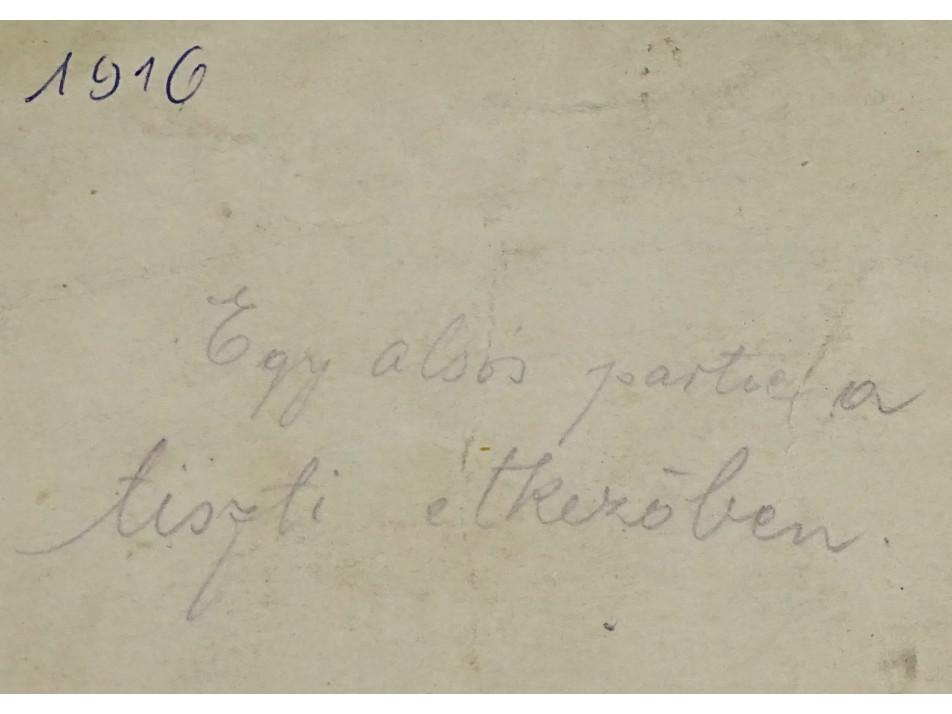 1916
Egy alsós partie a
tiszti étkezőben.